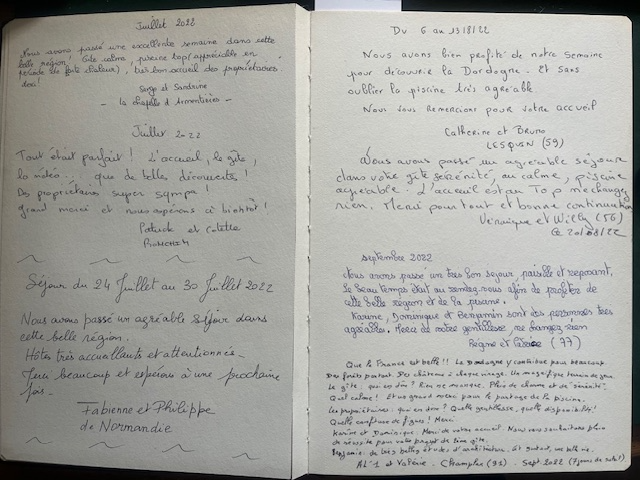 Juillet 2022
Nous avons passé une excellente semaine dans cette
belle région ! Gîte calme, piscine top (appréciable en
période de forte chaleur), très bon accueil des propriétaires
Serge et Sandrine
- la chapelle d'Armentières -
Juillet 2022
Tout était parfait ! L'accueil, le gîte,
la météo... que de belles découvertes !
Des propriétaires super sympa !
Grand merci et nous espérons à bientôt !
Patrick et Colette
Séjour du 24 Juillet au 30 Juillet 2022
Nous avons passé un agréable séjour dans
cette belle région.
Hôtes très accueillants et attentionnés.
Merci beaucoup et espérons à une prochaine
fois.
Fabienne et Philippe
de Normandie
Du 6 au 13/8/22
Nous avons bien profité de notre semaine
pour découvrir la Dordogne. Et sans
oublier la piscine très agréable
Nous vous remercions pour votre accueil
Catherine et Bruno
LESQUIN (59)
Nous avons passé un agréable séjour
dans votre gîte sérénité, au calme, piscine
agréable. L'accueil est au Top n'changez
rien. Merci pour tout et bonne continuation
Véronique et Willy (56)
Le 20/08/22
septembre 2022
Nous avons passé un très bon séjour, paisible et reposant,
le beau temps était au rendez-vous afin de profiter de
cette belle région et de la piscine.
Karine, Dominique et Benjamin sont des personnes très
agréables. Merci de votre gentillesse, ne changez rien
Régine et (77)
Que la France est belle !! La Dordogne y contribue pour beaucoup.
Des forêts partout. Des châteaux à chaque virage. Un magnifique terrain de jeux
Le gîte, qui en dire ? Rien ne manque. Plein de charme et de sérénité.
Quel calme ! Et un grand merci pour le partage de la piscine.
Les propriétaires, qui en dire ? Quelle gentillesse, quelle disponibilité !
Quelle confiture de figues ! Merci
Karine et Dominique. Merci de votre accueil. Nous vous souhaitons plein
de réussite pour votre projet de 2ème gîte.
Benjamin de très belles études d'architecture. Et surtout, une belle vie.
et Valérie. Champlan (91). Sept 2022 (7 jours de soleil)